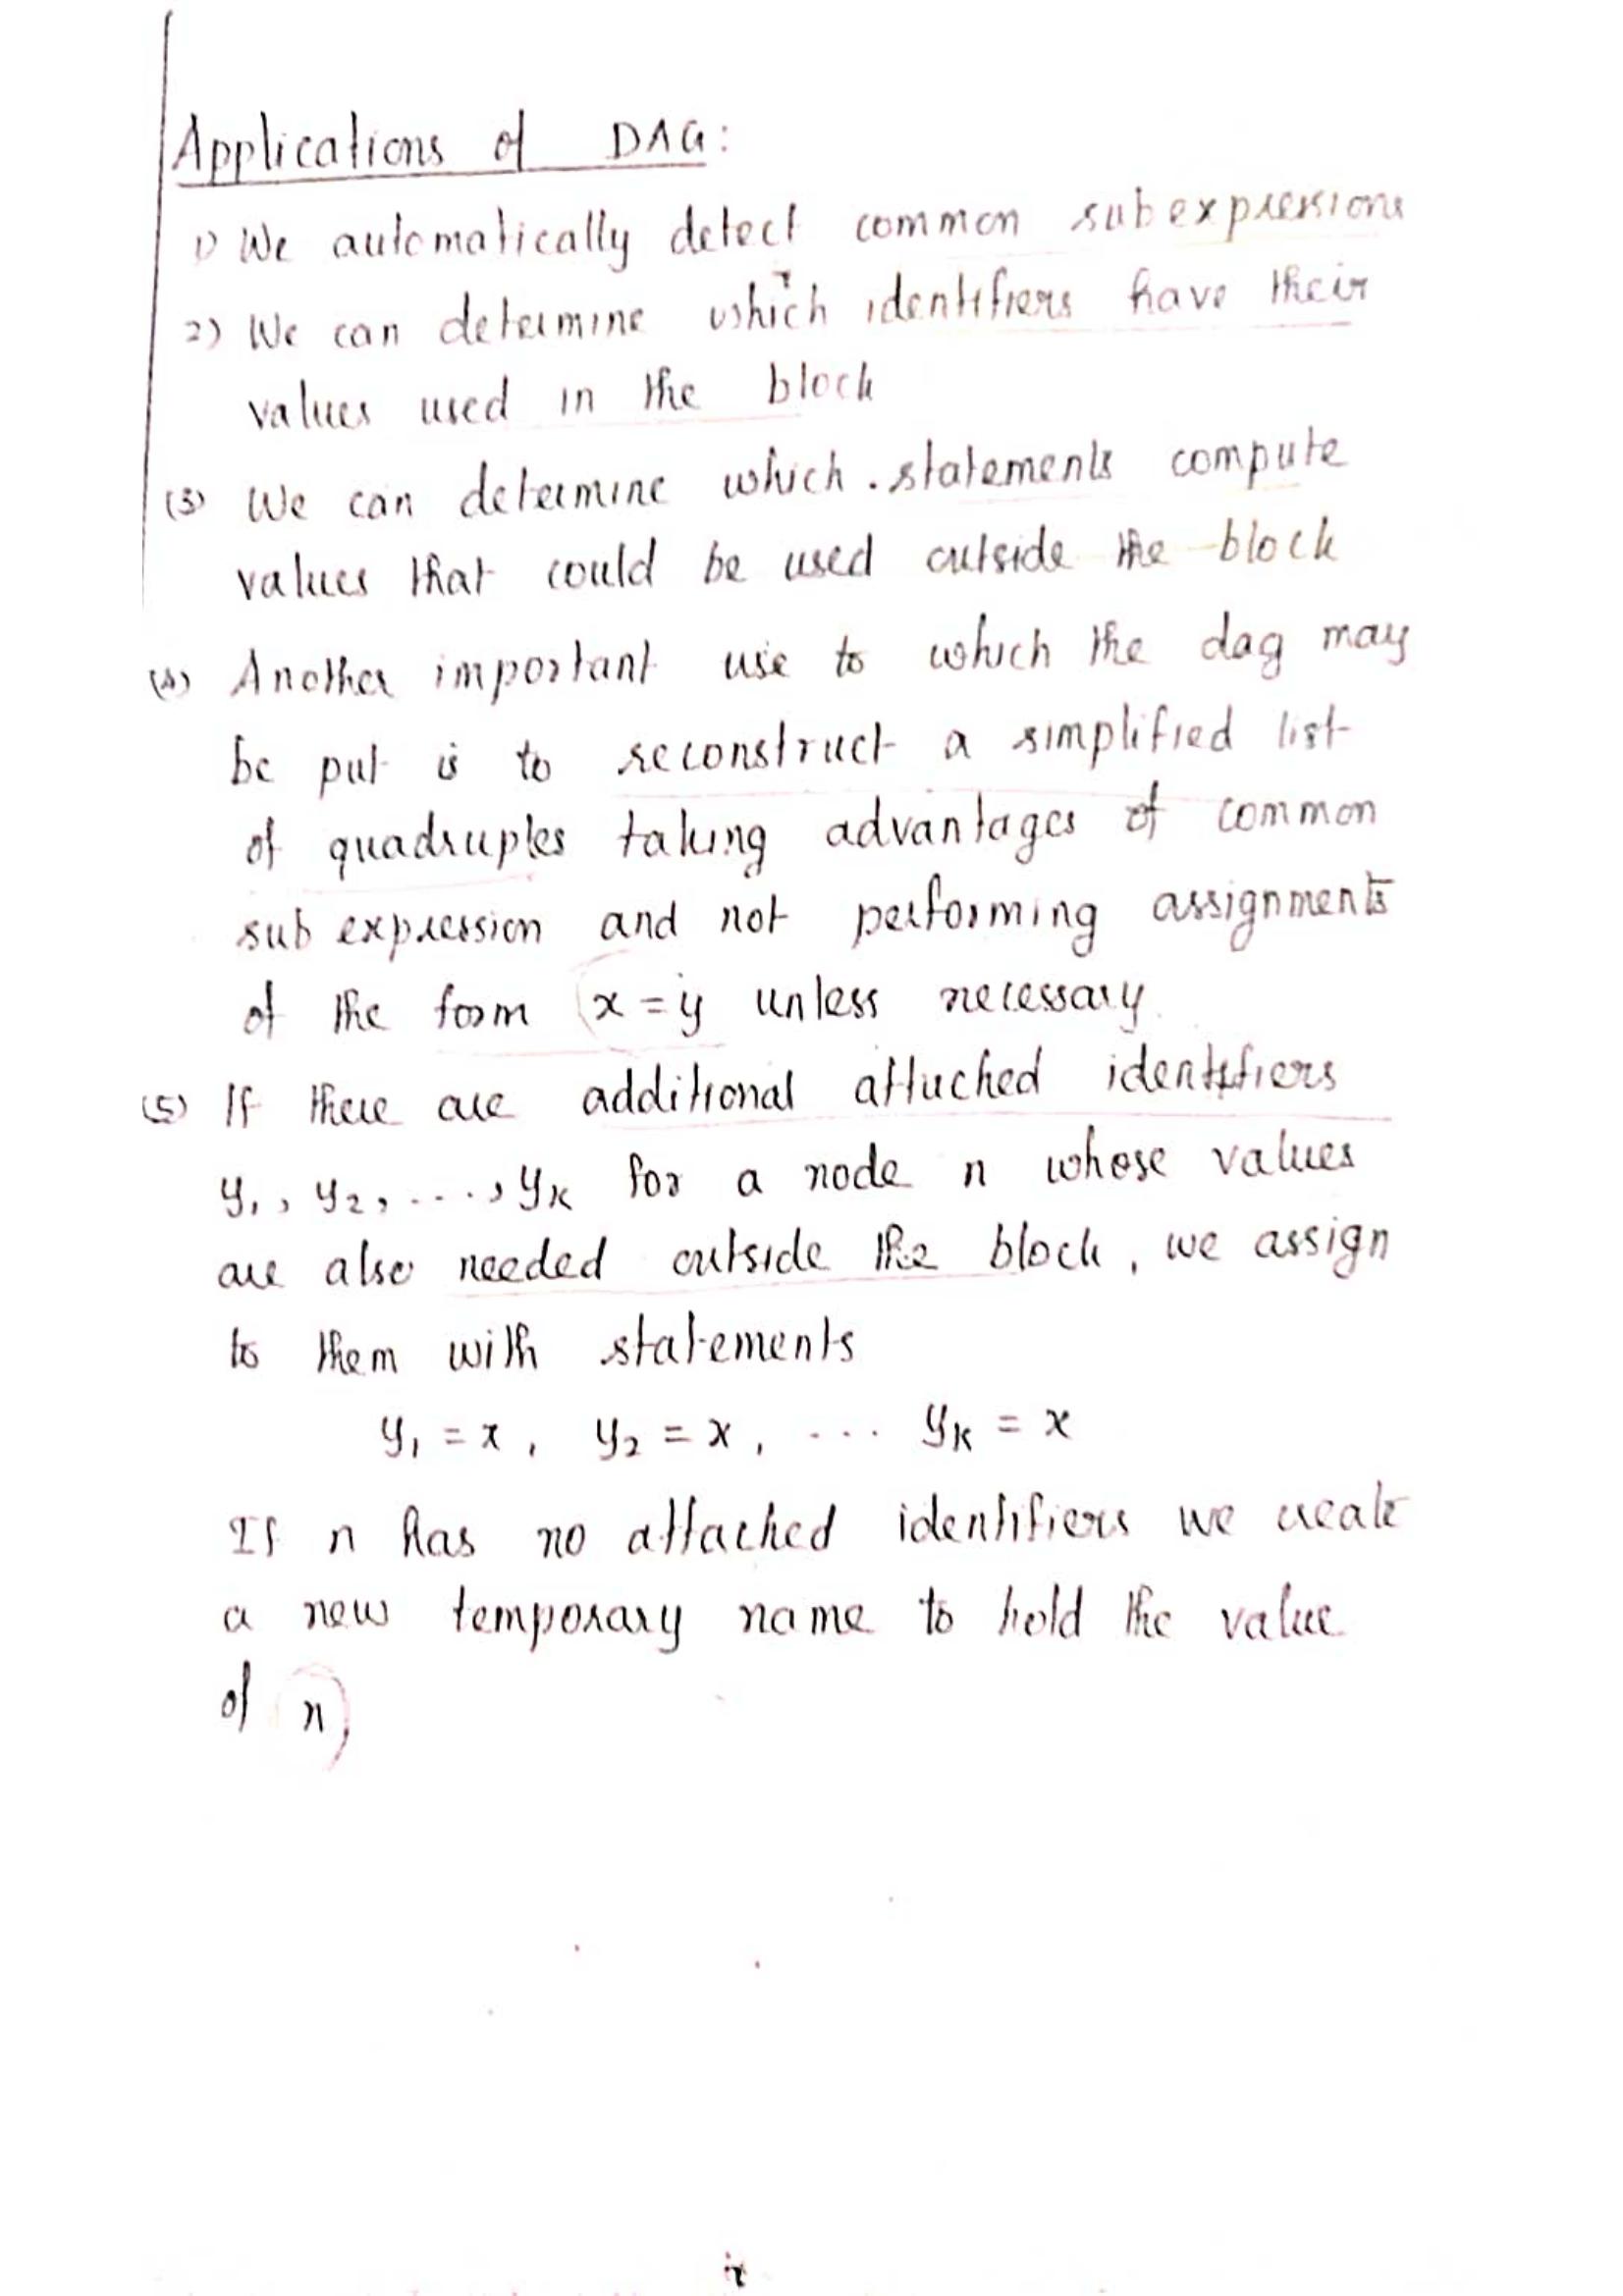 Applications of DAG:
1) We automatically detect common subexpressions
2) We can determine which identifiers have their
values used in the block
(3) We can determine which statements compute
values that could be used outside the block
(4) Another important use to which the dag may
be put is to reconstruct a simplified list
of quadruples taking advantages of common
sub expression and not performing assignments
of the form x = y unless necessary.
(5) If there are additional attached identifiers
y₁, y₂, ...., yₖ for a node n whose values
are also needed outside the block, we assign
to them with statements
y₁ = x, y₂ = x, ... yₖ = x
If n has no attached identifiers we create
a new temporary name to hold the value
of n